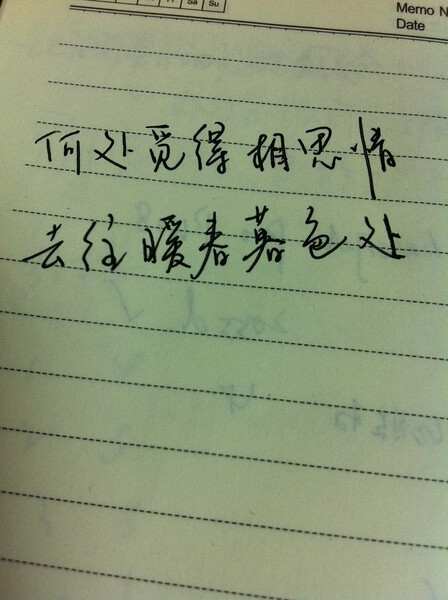 Fr Sa Su
Memo N
Date
何处觅得相思情
去往暖春暮色处